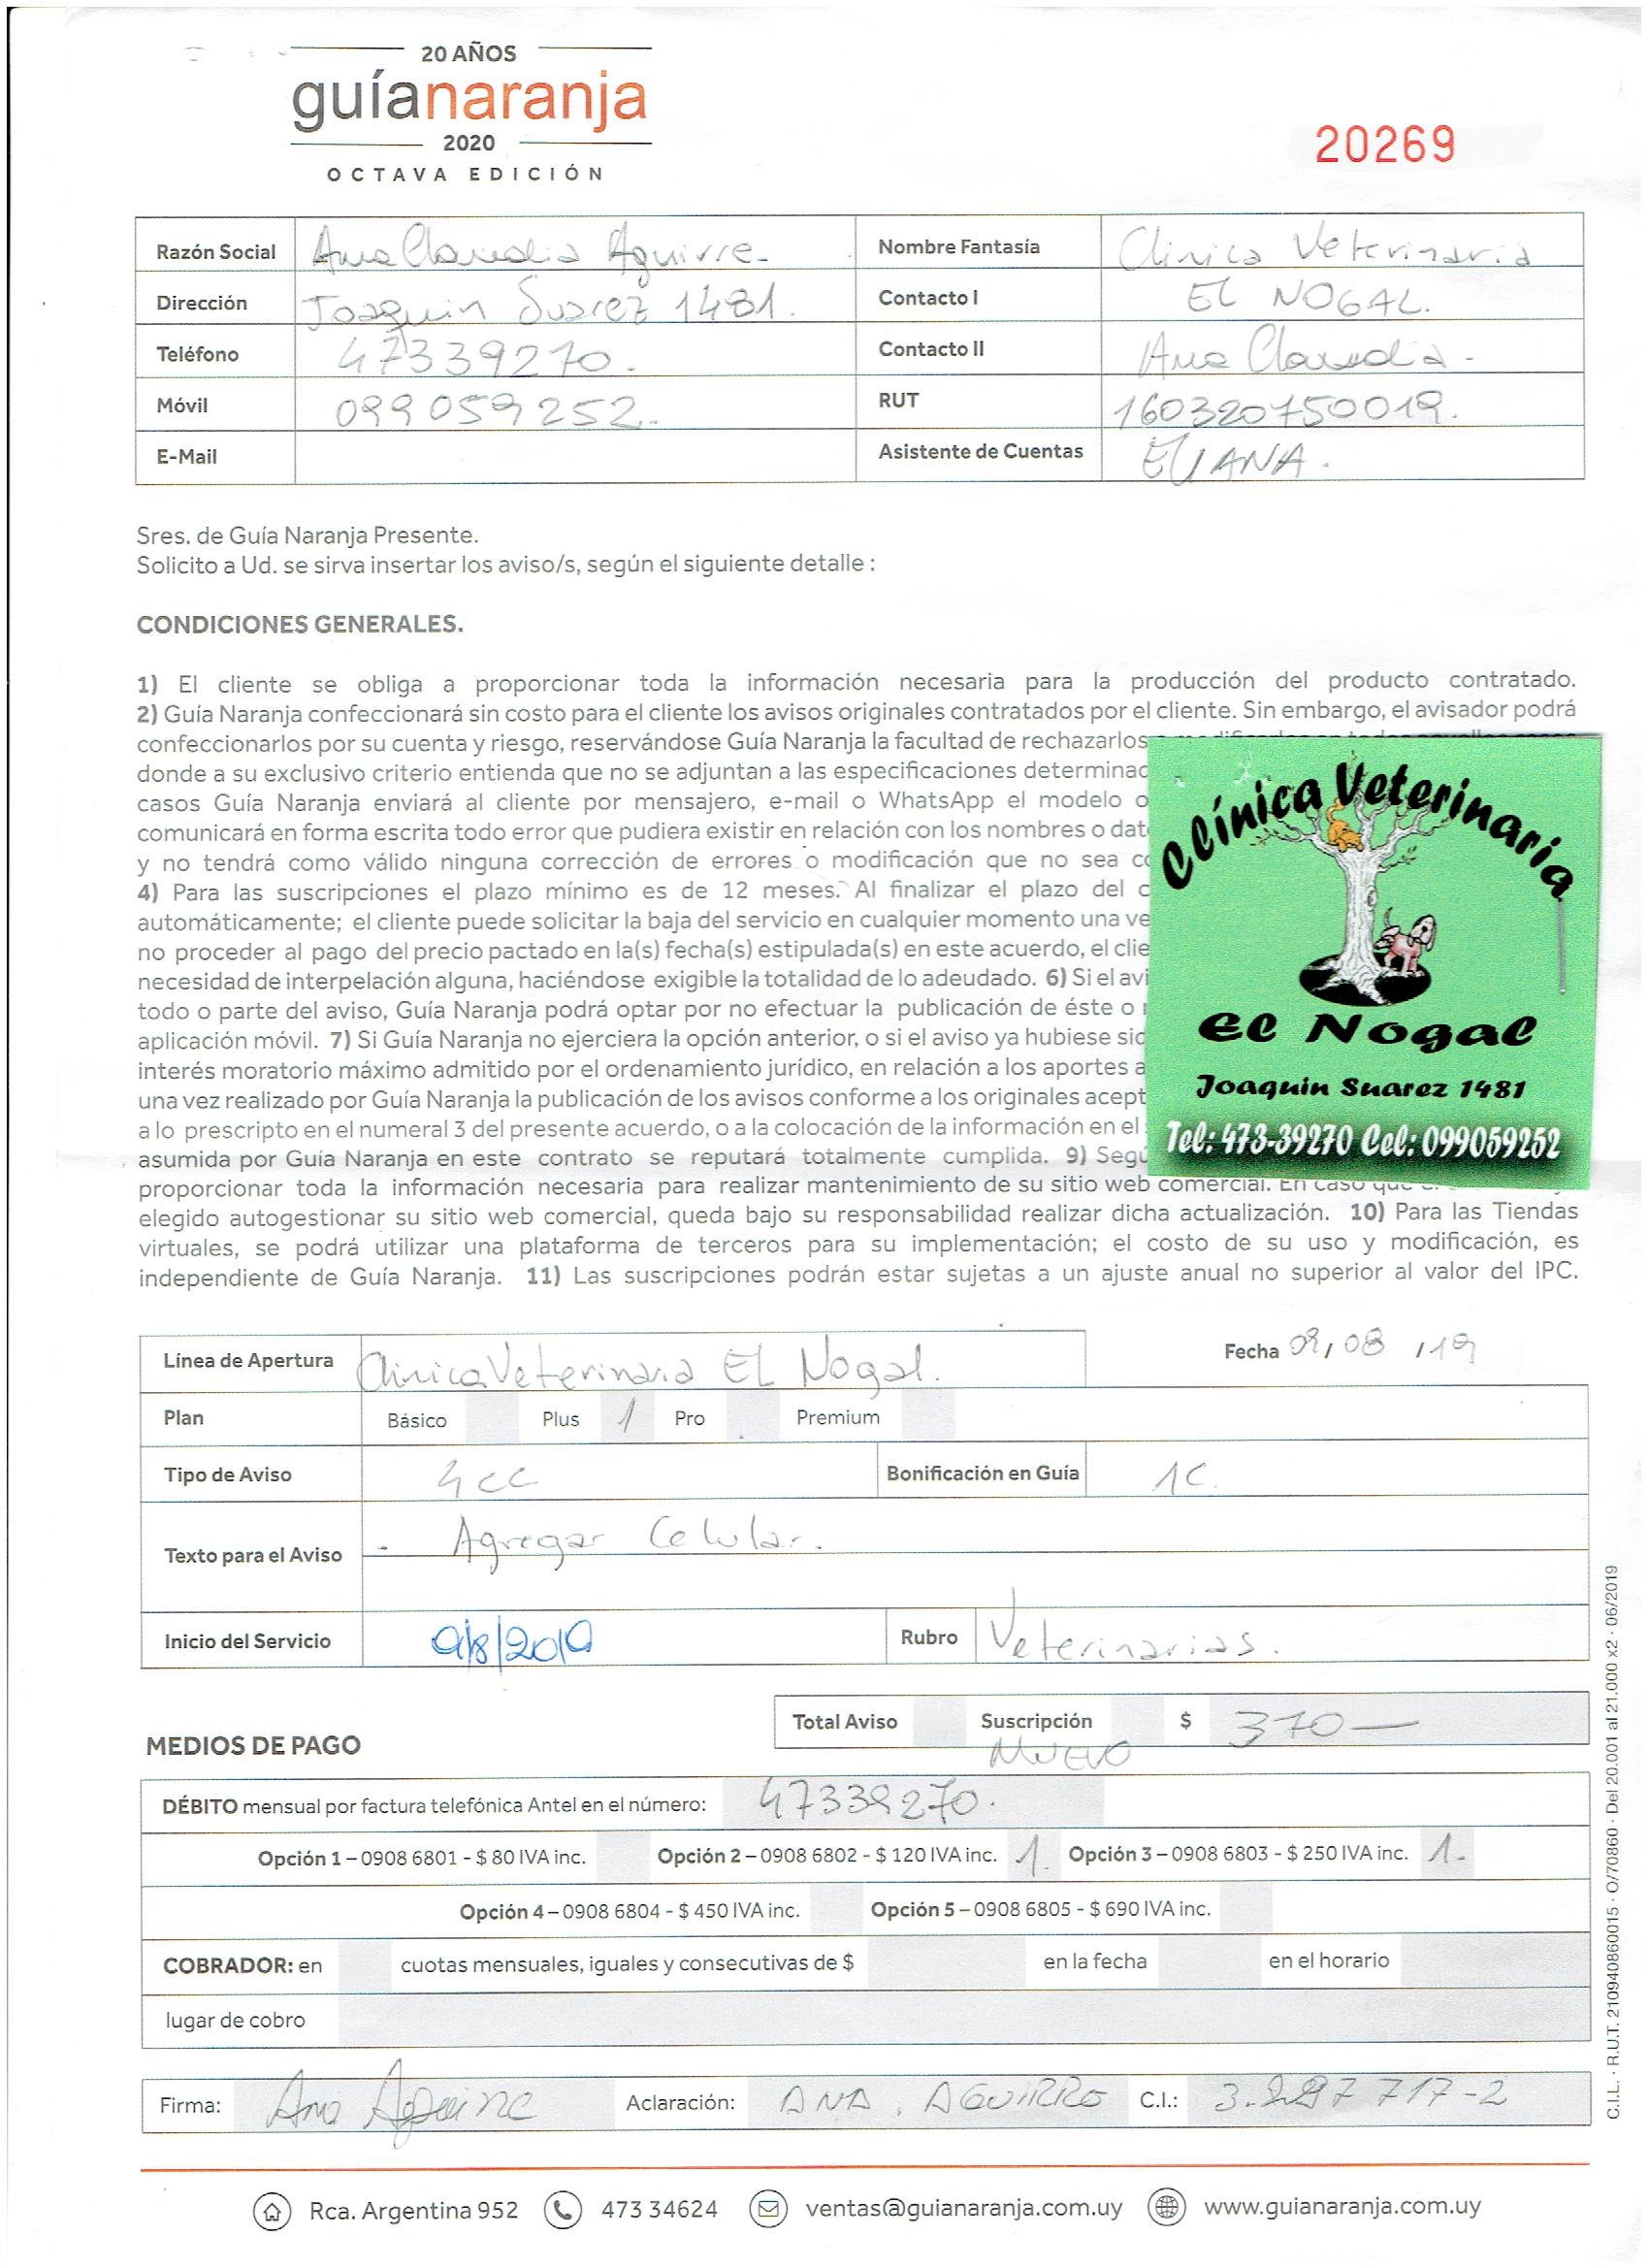 20 AÑOS
guíanaranja
2020
OCTAVA EDICIÓN
20269
Razón Social Ana Claudia Aguirre.
Nombre Fantasía Clinica Veterinaria
Dirección Joaquin Suarez 1481.
Contacto I EL NOGAL.
Teléfono 47339270.
Contacto II Ana Claudia.
Móvil 099059252.
RUT 160320750019.
E-Mail
Asistente de Cuentas ELIANA.
Sres. de Guía Naranja Presente.
Solicito a Ud. se sirva insertar los aviso/s, según el siguiente detalle :
CONDICIONES GENERALES.
1) El cliente se obliga a proporcionar toda la información necesaria para la producción del producto contratado.
2) Guía Naranja confeccionará sin costo para el cliente los avisos originales contratados por el cliente. Sin embargo, el avisador podrá
confeccionarlos por su cuenta y riesgo, reservándose Guía Naranja la facultad de rechazarlos
donde a su exclusivo criterio entienda que no se adjuntan a las especificaciones determinac
casos Guía Naranja enviará al cliente por mensajero, e-mail o WhatsApp el modelo o
comunicará en forma escrita todo error que pudiera existir en relación con los nombres o dat
y no tendrá como válido ninguna corrección de errores o modificación que no sea c
4) Para las suscripciones el plazo mínimo es de 12 meses. Al finalizar el plazo del c
automáticamente; el cliente puede solicitar la baja del servicio en cualquier momento una ve
no proceder al pago del precio pactado en la(s) fecha(s) estipulada(s) en este acuerdo, el clie
necesidad de interpelación alguna, haciéndose exigible la totalidad de lo adeudado. 6) Si el avi
todo o parte del aviso, Guía Naranja podrá optar por no efectuar la publicación de éste o
aplicación móvil. 7) Si Guía Naranja no ejerciera la opción anterior, o si el aviso ya hubiese sid
interés moratorio máximo admitido por el ordenamiento jurídico, en relación a los aportes a
una vez realizado por Guía Naranja la publicación de los avisos conforme a los originales acept
a lo prescripto en el numeral 3 del presente acuerdo, o a la colocación de la información en el
asumida por Guía Naranja en este contrato se reputará totalmente cumplida. 9) Segú
proporcionar toda la información necesaria para realizar mantenimiento de su sitio web comercial. En caso que
elegido autogestionar su sitio web comercial, queda bajo su responsabilidad realizar dicha actualización. 10) Para las Tiendas
virtuales, se podrá utilizar una plataforma de terceros para su implementación; el costo de su uso y modificación, es
independiente de Guía Naranja. 11) Las suscripciones podrán estar sujetas a un ajuste anual no superior al valor del IPC.
Clínica Veterinaria
El Nogal
Joaquin Suarez 1481
Tel: 473-39270 Cel: 099059252
Línea de Apertura Clinica Veterinaria EL Nogal.
Fecha 09/08/19
Plan Básico Plus 1 Pro Premium
Tipo de Aviso 4cc
Bonificación en Guía 1C.
Texto para el Aviso - Agregar Celular.
Inicio del Servicio 9/8/2019
Rubro Veterinarias.
Total Aviso Suscripción $ 370—
NUEVO
MEDIOS DE PAGO
DÉBITO mensual por factura telefónica Antel en el número: 47339270.
Opción 1 – 0908 6801 - $ 80 IVA inc. Opción 2 – 0908 6802 - $ 120 IVA inc. 1. Opción 3 – 0908 6803 - $ 250 IVA inc. 1.
Opción 4 – 0908 6804 - $ 450 IVA inc. Opción 5 – 0908 6805 - $ 690 IVA inc.
COBRADOR: en cuotas mensuales, iguales y consecutivas de $ en la fecha en el horario
lugar de cobro
Firma: Ana Aguirre Aclaración: ANA. AGUIRRE C.I.: 717-2
Rca. Argentina 952 473 34624 ventas@guianaranja.com.uy www.guianaranja.com.uy
C.I.L. · R.U.T. 210940860015 · O/70860 · Del 20.001 al 21.000 x2 · 06/2019